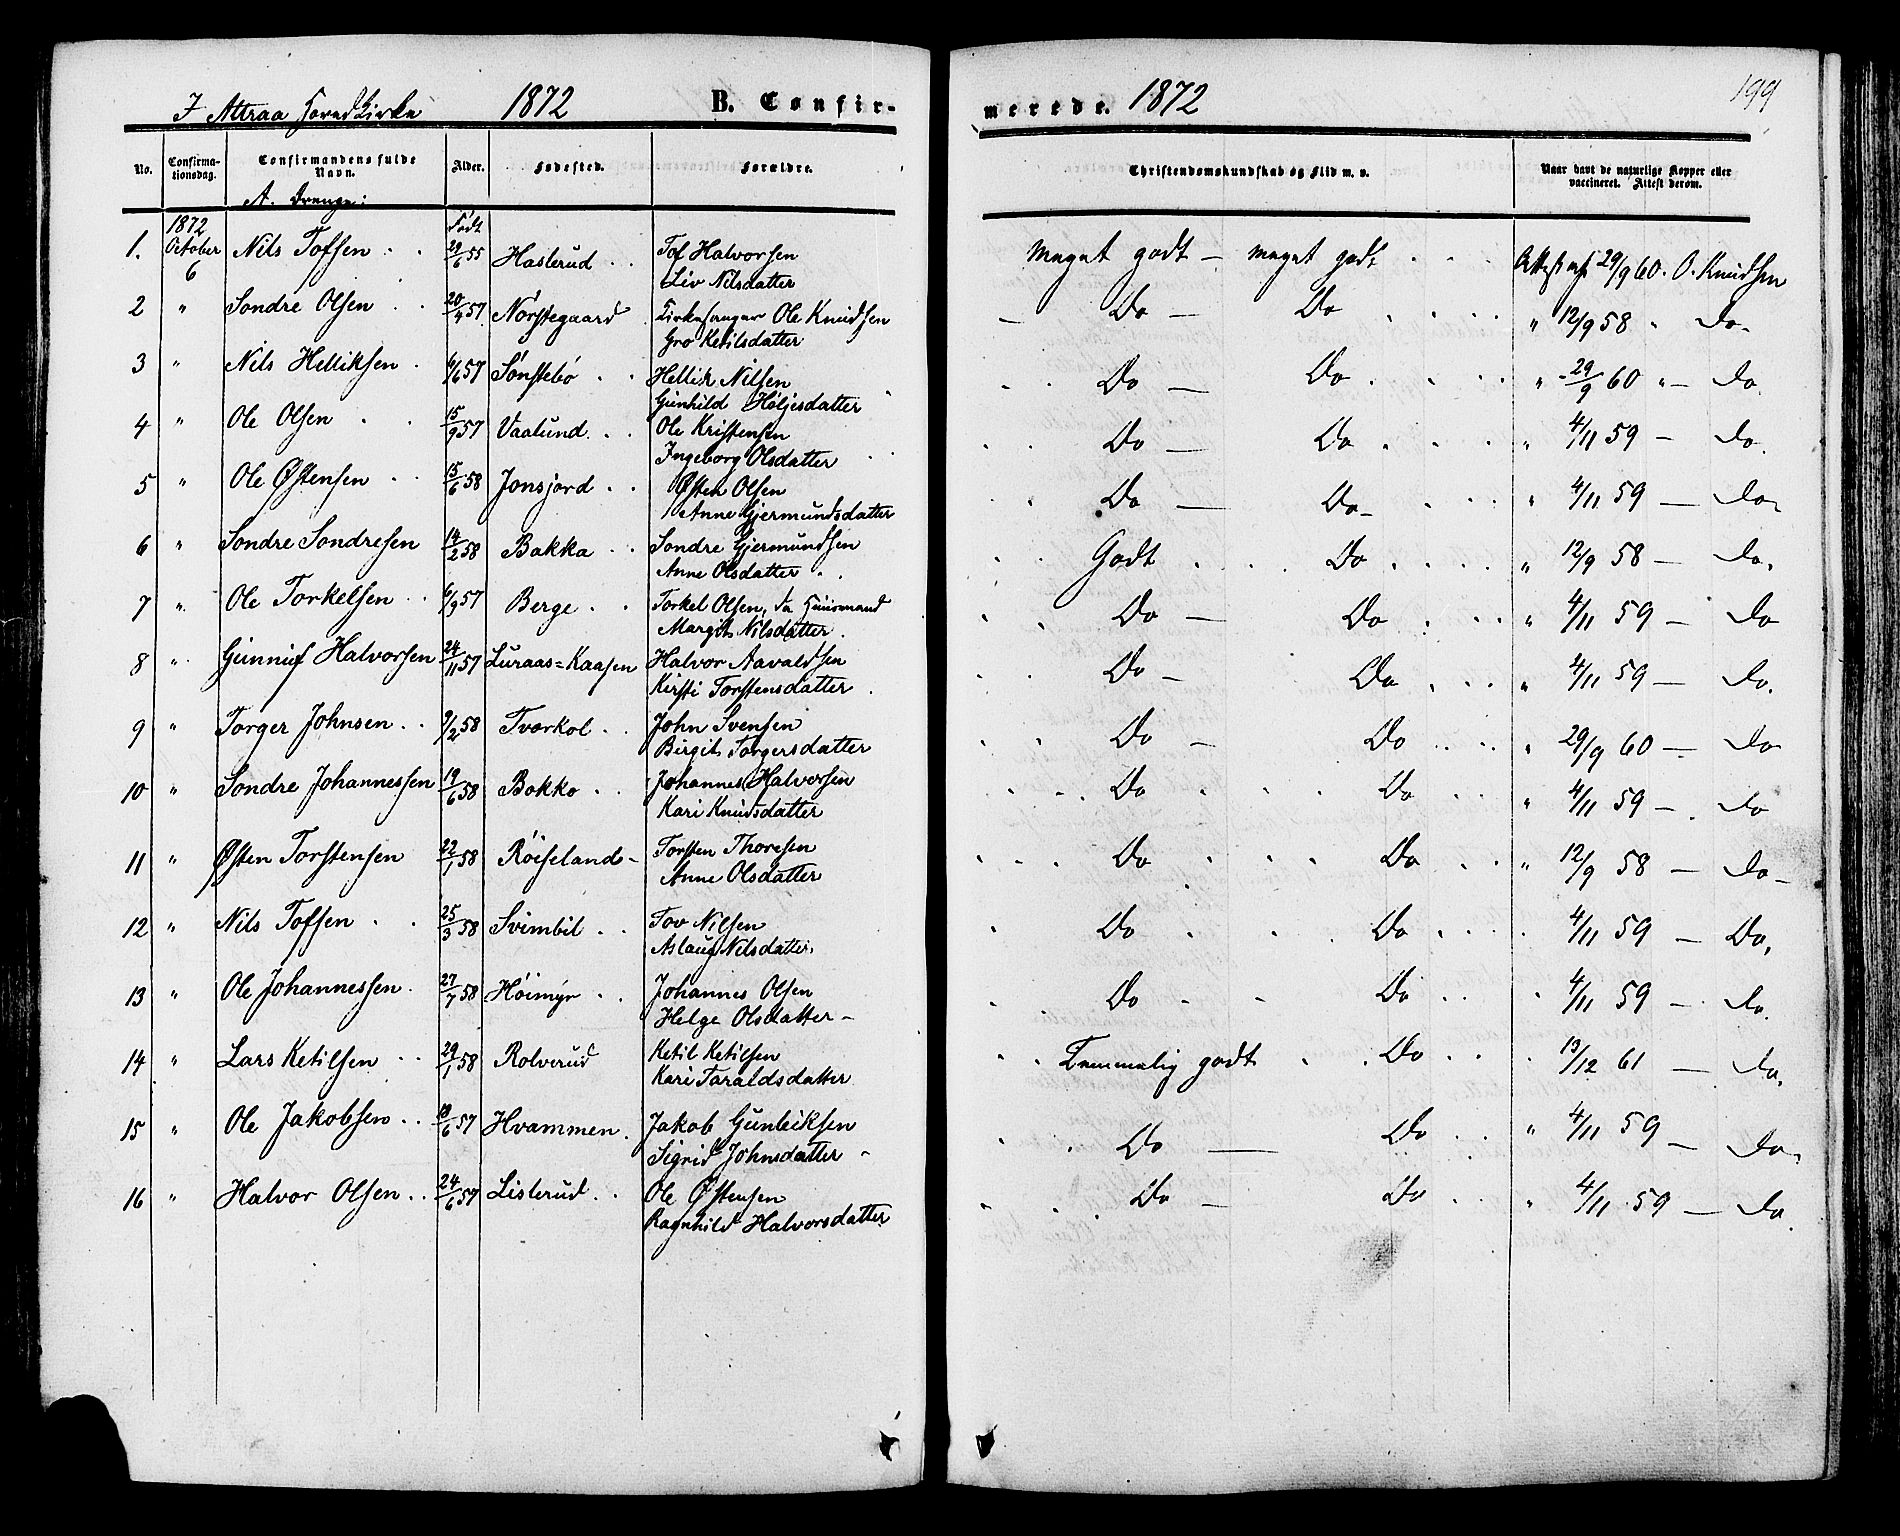 I Attraa HovedKirke 1872 B. Confir-
No. Confirma-tionsdag. Confirmandens fulde Navn. Alder. Fødested. Forældre.
A. Drenge:
1872 Født
1. October 6 Nils Tofsen 29/6 55 Haslerud Tof Halvorsen
Liv Nilsdatter
2 " Sondre Olsen 20/4 57 Nørstegaard Kirkesanger Ole Knudsen
Gro Ketilsdatter
3 " Nils Helliksen 6/6 57 Sønstebø Hellik Nilsen
Gunhild Høljesdatter
4 " Ole Olsen 15/9 57 Vaalund Ole Kristensen
Ingeborg Olsdatter
5 " Ole Østensen 15/6 58 Jonsjord Østen Olsen
Anne Gjermundsdatter
6 " Sondre Sondresen 14/2 58 Bakka Sondre Gjermundsen
Anne Olsdatter
7 " Ole Torkelsen 6/9 57 Berge Torkel Olsen, Huusmand
Margit Nilsdatter
8 " Gunnuf Halvorsen 24/11 57 Luraas=Kaasen Halvor Aavaldsen
Kirsti Torstensdatter
9 " Torger Johnsen 9/2 58 Tværkol John Svensen
Birgit Torgersdatter
10 " Sondre Johannessen 19/6 58 Bokko Johannes Halvorsen
Kari Knudsdatter
11 " Østen Torstensen 22/1 58 Røiseland Torsten Thoresen
Anne Olsdatter
12 " Nils Tofsen 25/3 58 Svimbil Tov Nilsen
Aslaug Nilsdatter
13 " Ole Johannessen 27/7 58 Høimyr Johannes Olsen
Helge Olsdatter
14 " Lars Ketilsen 29/1 58 Rolverud Ketil Ketilsen
Kari Taraldsdatter
15 " Ole Jakobsen 18/6 57 Hvammen Jakob Gunleiksen
Sigrid Johnsdatter
16 " Halvor Olsen 24/6 57 Lislerud Ole Østensen
Ragnhild Halvorsdatter
merede. 1872 199
Christendomskundskab og Flid m. v. Naar havt de naturlige Kopper eller vaccineret. Attest derom.
Meget godt - meget godt Attest af 29/9 60. O. Knudsen
Do - Do " 12/9 58 " Do
Do - Do " 29/9 60 " - Do
Do - Do " 4/11 59 - Do
Do - Do " 4/11 59 - Do
Godt Do " 12/9 58 - Do
Do - Do " 4/11 59 - Do
Do - Do " 4/11 59 - Do
Do - Do " 29/9 60 - Do
Do Do " 4/11 59 - Do
Do Do " 12/9 58 - Do
Do Do 4/11 59 - Do
Do Do 4/11 59 - Do
Temmelig godt Do 13/12 61 - Do
Do - Do " 4/11 59 - Do
Do - Do " 4/11 59 - Do